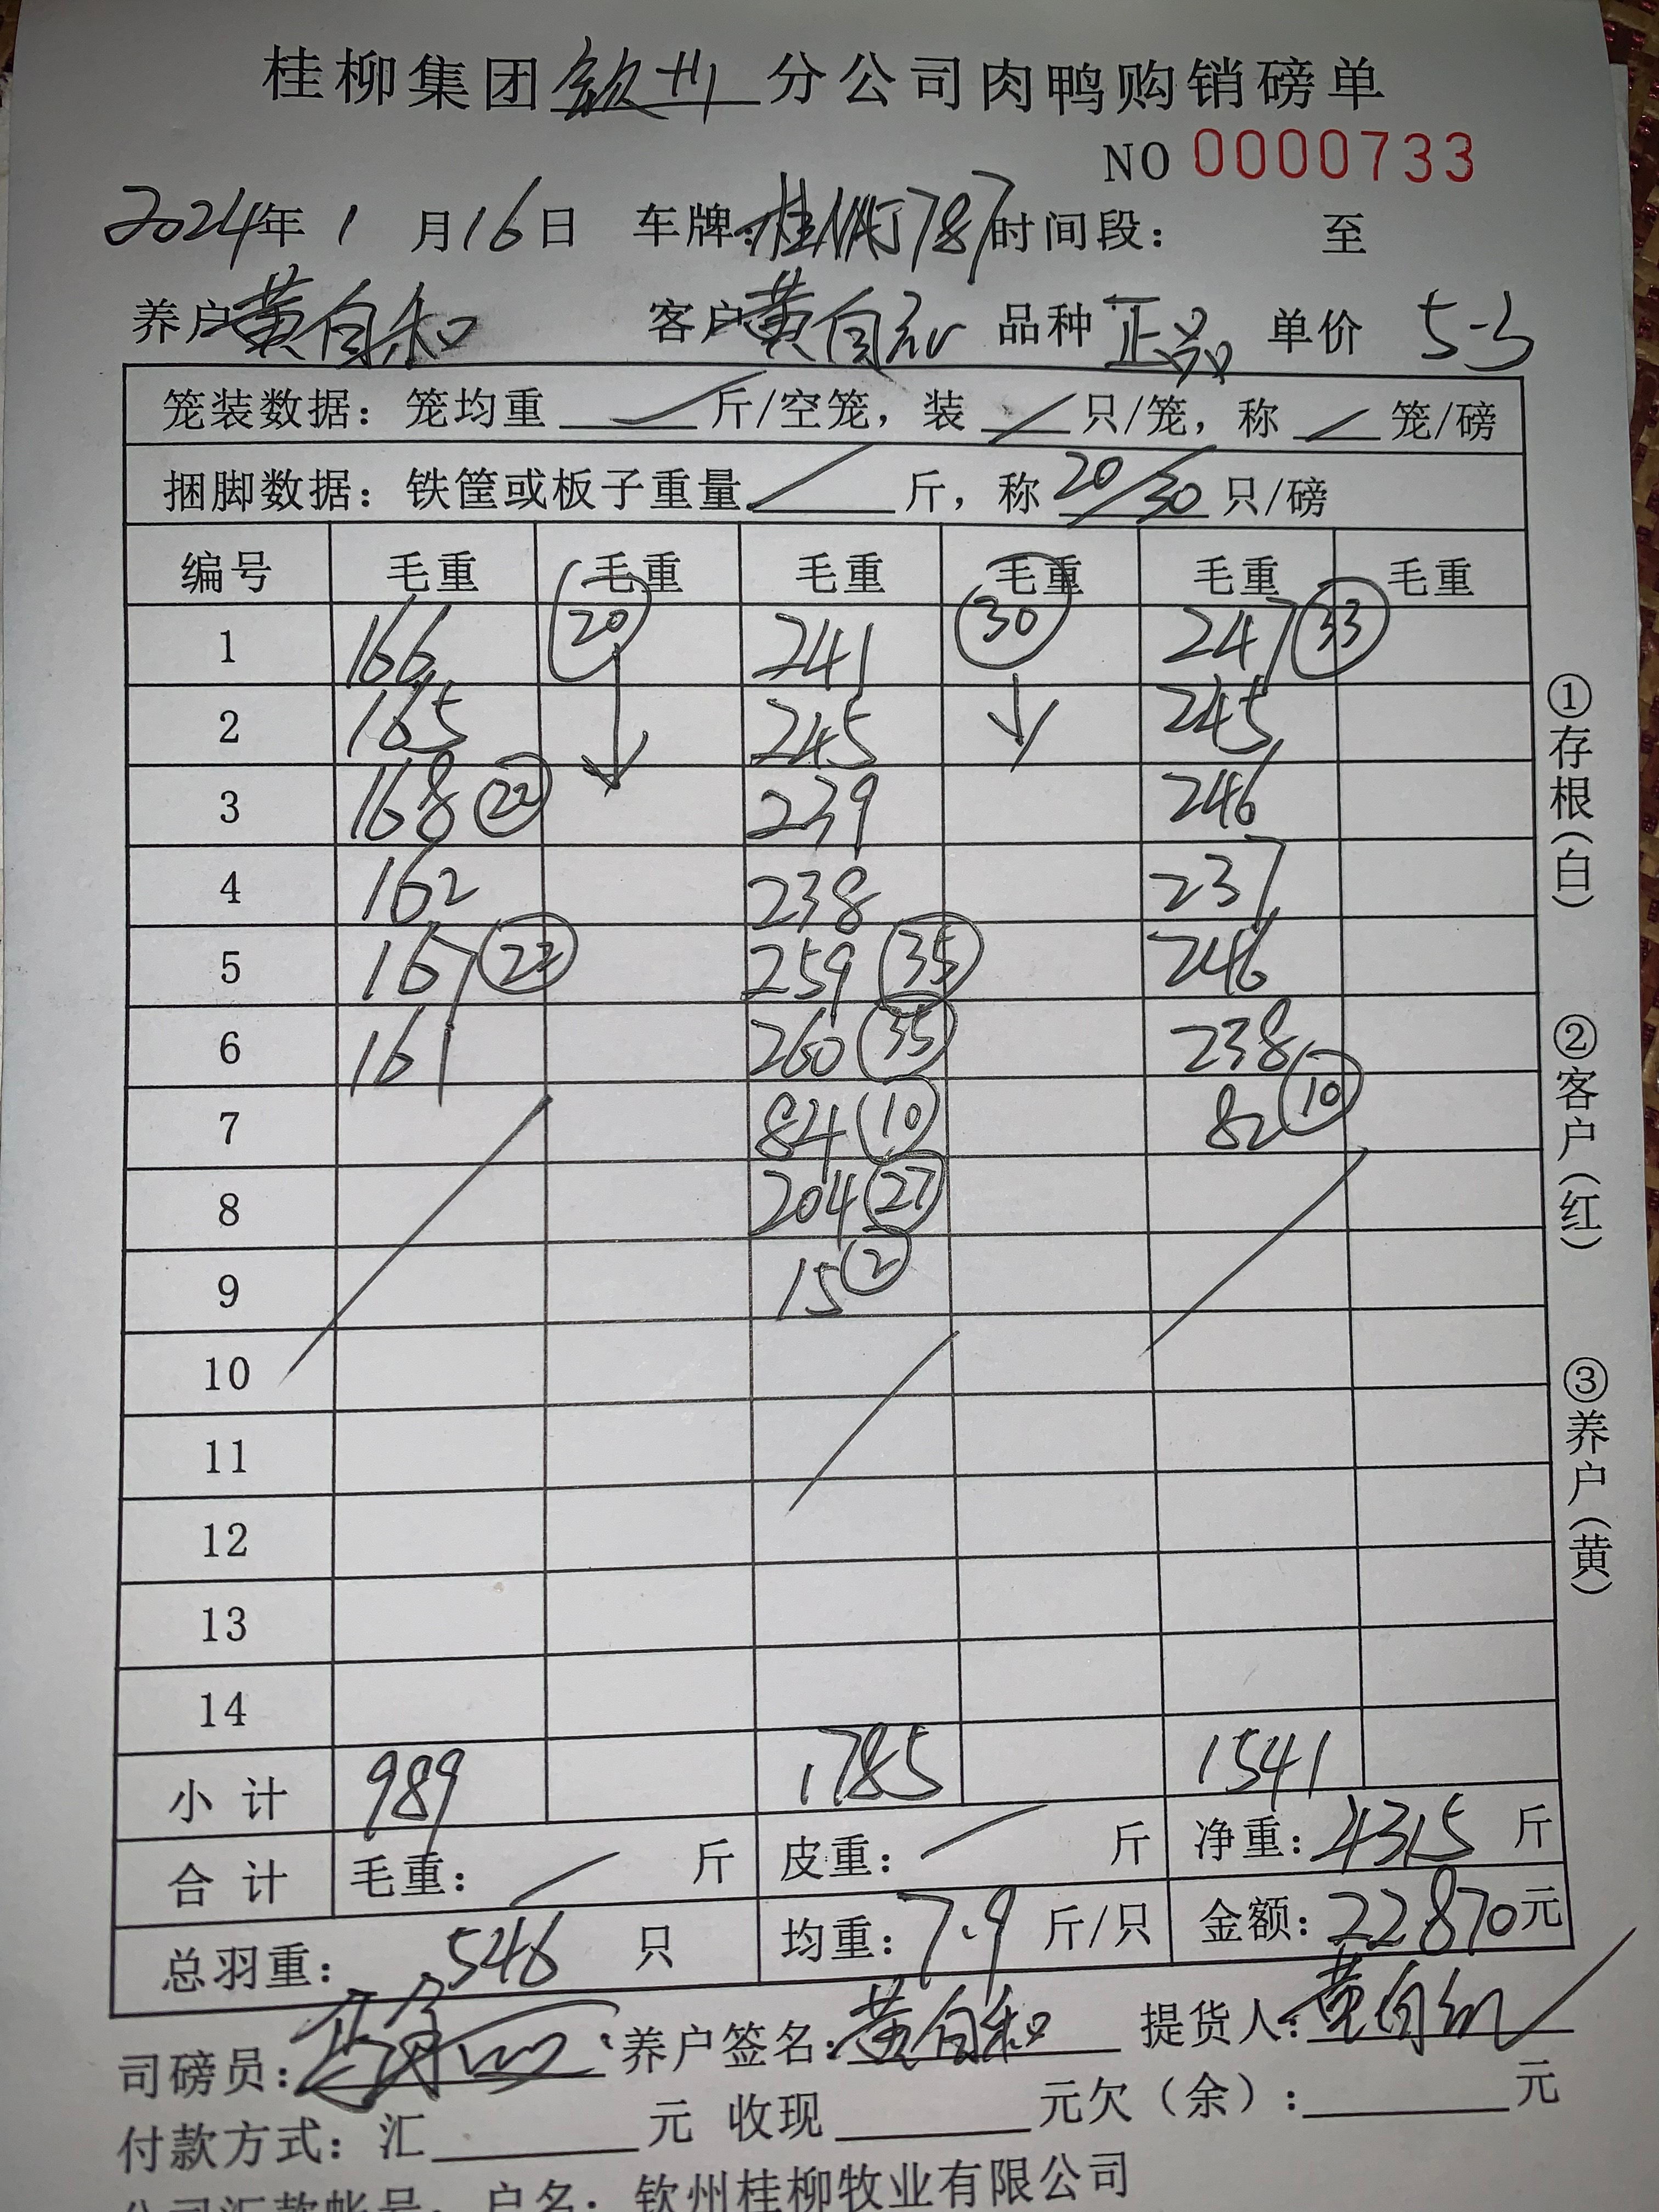 桂柳集团钦州分公司肉鸭购销磅单
NO 0000733
2024年1月16日 车牌:桂 787 时间段: 至
养户黄自和 客户黄自 品种正品 单价 5.3
笼装数据:笼均重 / 斤/空笼,装 / 只/笼,称 / 笼/磅
捆脚数据:铁筐或板子重量 / 斤,称 20/30 只/磅
编号 毛重 毛重 毛重 毛重 毛重 毛重
1 166 20 241 30 247 33
2 165 245 245
3 168 22 239 246
4 162 238 237
5 167 259 35 246
6 161 260 35 238
7 84 10 82 10
8 204 27
9 15 2
10
11
12
13
14
小计 989 1785 1541
合计 毛重: / 斤 皮重: / 斤 净重:4315 斤
总羽重: 546 只 均重:7.9 斤/只 金额:22870元
司磅员: 养户签名:黄自和 提货人:黄自
付款方式:汇 元 收现 元欠(余): 元
公司汇款帐号:户名:钦州桂柳牧业有限公司
①存根(白)
②客户(红)
③养户(黄)